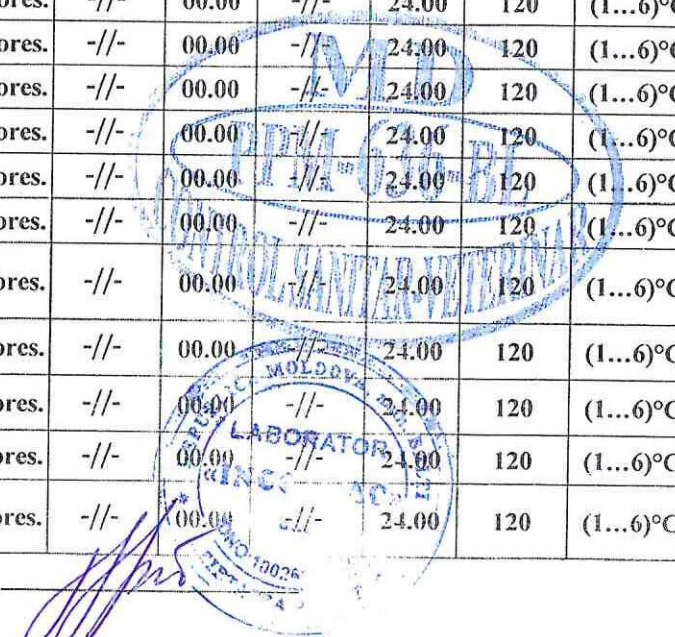 ores. -//- 00.00 -//- 24.00 120 (1...6)°C
ores. -//- 00.00 -//- 24.00 120 (1...6)°C
ores. -//- 00.00 -//- 24.00 120 (1...6)°C
ores. -//- 00.00 -//- 24.00 120 (1...6)°C
ores. -//- 00.00 -//- 24.00 120 (1...6)°C
ores. -//- 00.00 -//- 24.00 120 (1...6)°C
ores. -//- 00.00 -//- 24.00 120 (1...6)°C
ores. -//- 00.00 -//- 24.00 120 (1...6)°C
ores. -//- 00.00 -//- 24.00 120 (1...6)°C
ores. -//- 00.00 -//- 24.00 120 (1...6)°C
ores. -//- 00.00 -//- 24.00 120 (1...6)°C
MD
CONTROL SANITAR-VETERINAR
MOLDOVA
LABORATOR